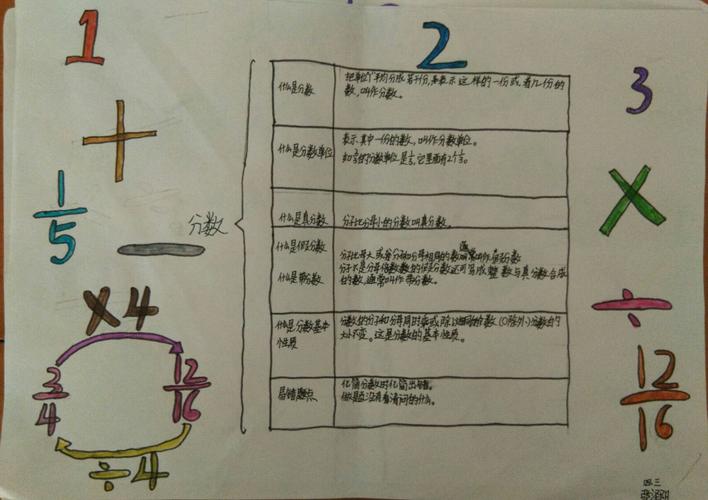 1
2
3
+
×
1/5
—
÷
×4
3/4
12/16
÷4
12/16
分数
什么是分数
把单位"1"平均分成若干份,来表示这样的一份或者几份的
数,叫作分数。
什么是分数单位
表示其中一份的数,叫作分数单位。
分数单位是 它里面有2个
什么是真分数
分子比分母小的分数叫真分数。
什么是假分数
分子比分母大或者分子和分母相同的数通常叫作假分数
什么是带分数
分子不是分母倍数的假分数还可写成整数与真分数合成
的数,通常叫作带分数。
什么是分数基本
性质
分数的分子和分母同时乘或除以相同的数(0除外)分数的
大小不变。这是分数的基本性质。
易错题点
化简分数时化简出错。
做题没有看清问的什么。
四三